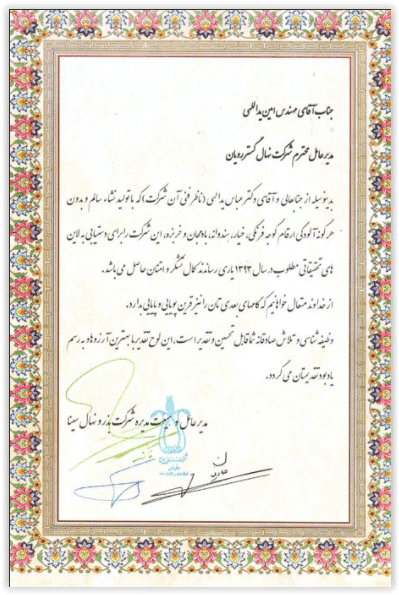 جناب آقای مهندس امین یداللهی
مدیرعامل محترم شرکت نهال گستر رویان
بدینوسیله از جنابعالی و آقای دکتر عباس یدالهی (ناظر فنی آن شرکت) که با تولید نشاء سالم و بدون
هرگونه آلودگی ارقام گوجه فرنگی، خیار، هندوانه، بادمجان و خربزه، این شرکت را برای دستیابی به لاین
های تحقیقاتی مطلوب در سال ۱۳۹۳ یاری رساندند کمال تشکر و امتنان حاصل می باشد.
از خداوند متعال خواهانیم که گامهای بعدی تان را نیز قرین پویایی و پایایی بدارد.
وظیفه شناسی و تلاش صادقانه شما قابل تحسین و تقدیر است، این لوح تقدیر با بهترین آرزوها و به رسم
یادبود تقدیمتان می گردد.
مدیرعامل و هیئت مدیره شرکت بذر و نهال سینا